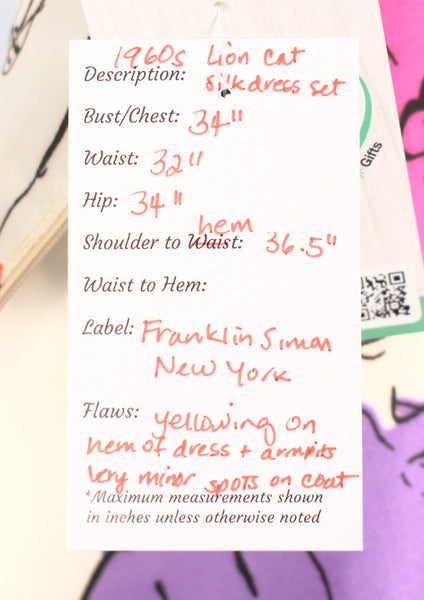 1960s Lion Cat
Description: Silk dress set
Bust/Chest: 34"
Waist: 32"
Hip: 34"
hem
Shoulder to Waist: 36.5"
Waist to Hem:
Label: Franklin Simon
New York
Flaws: yellowing on
hem of dress + armpits
Very minor spots on coat
*Maximum measurements shown
in inches unless otherwise noted
Gifts